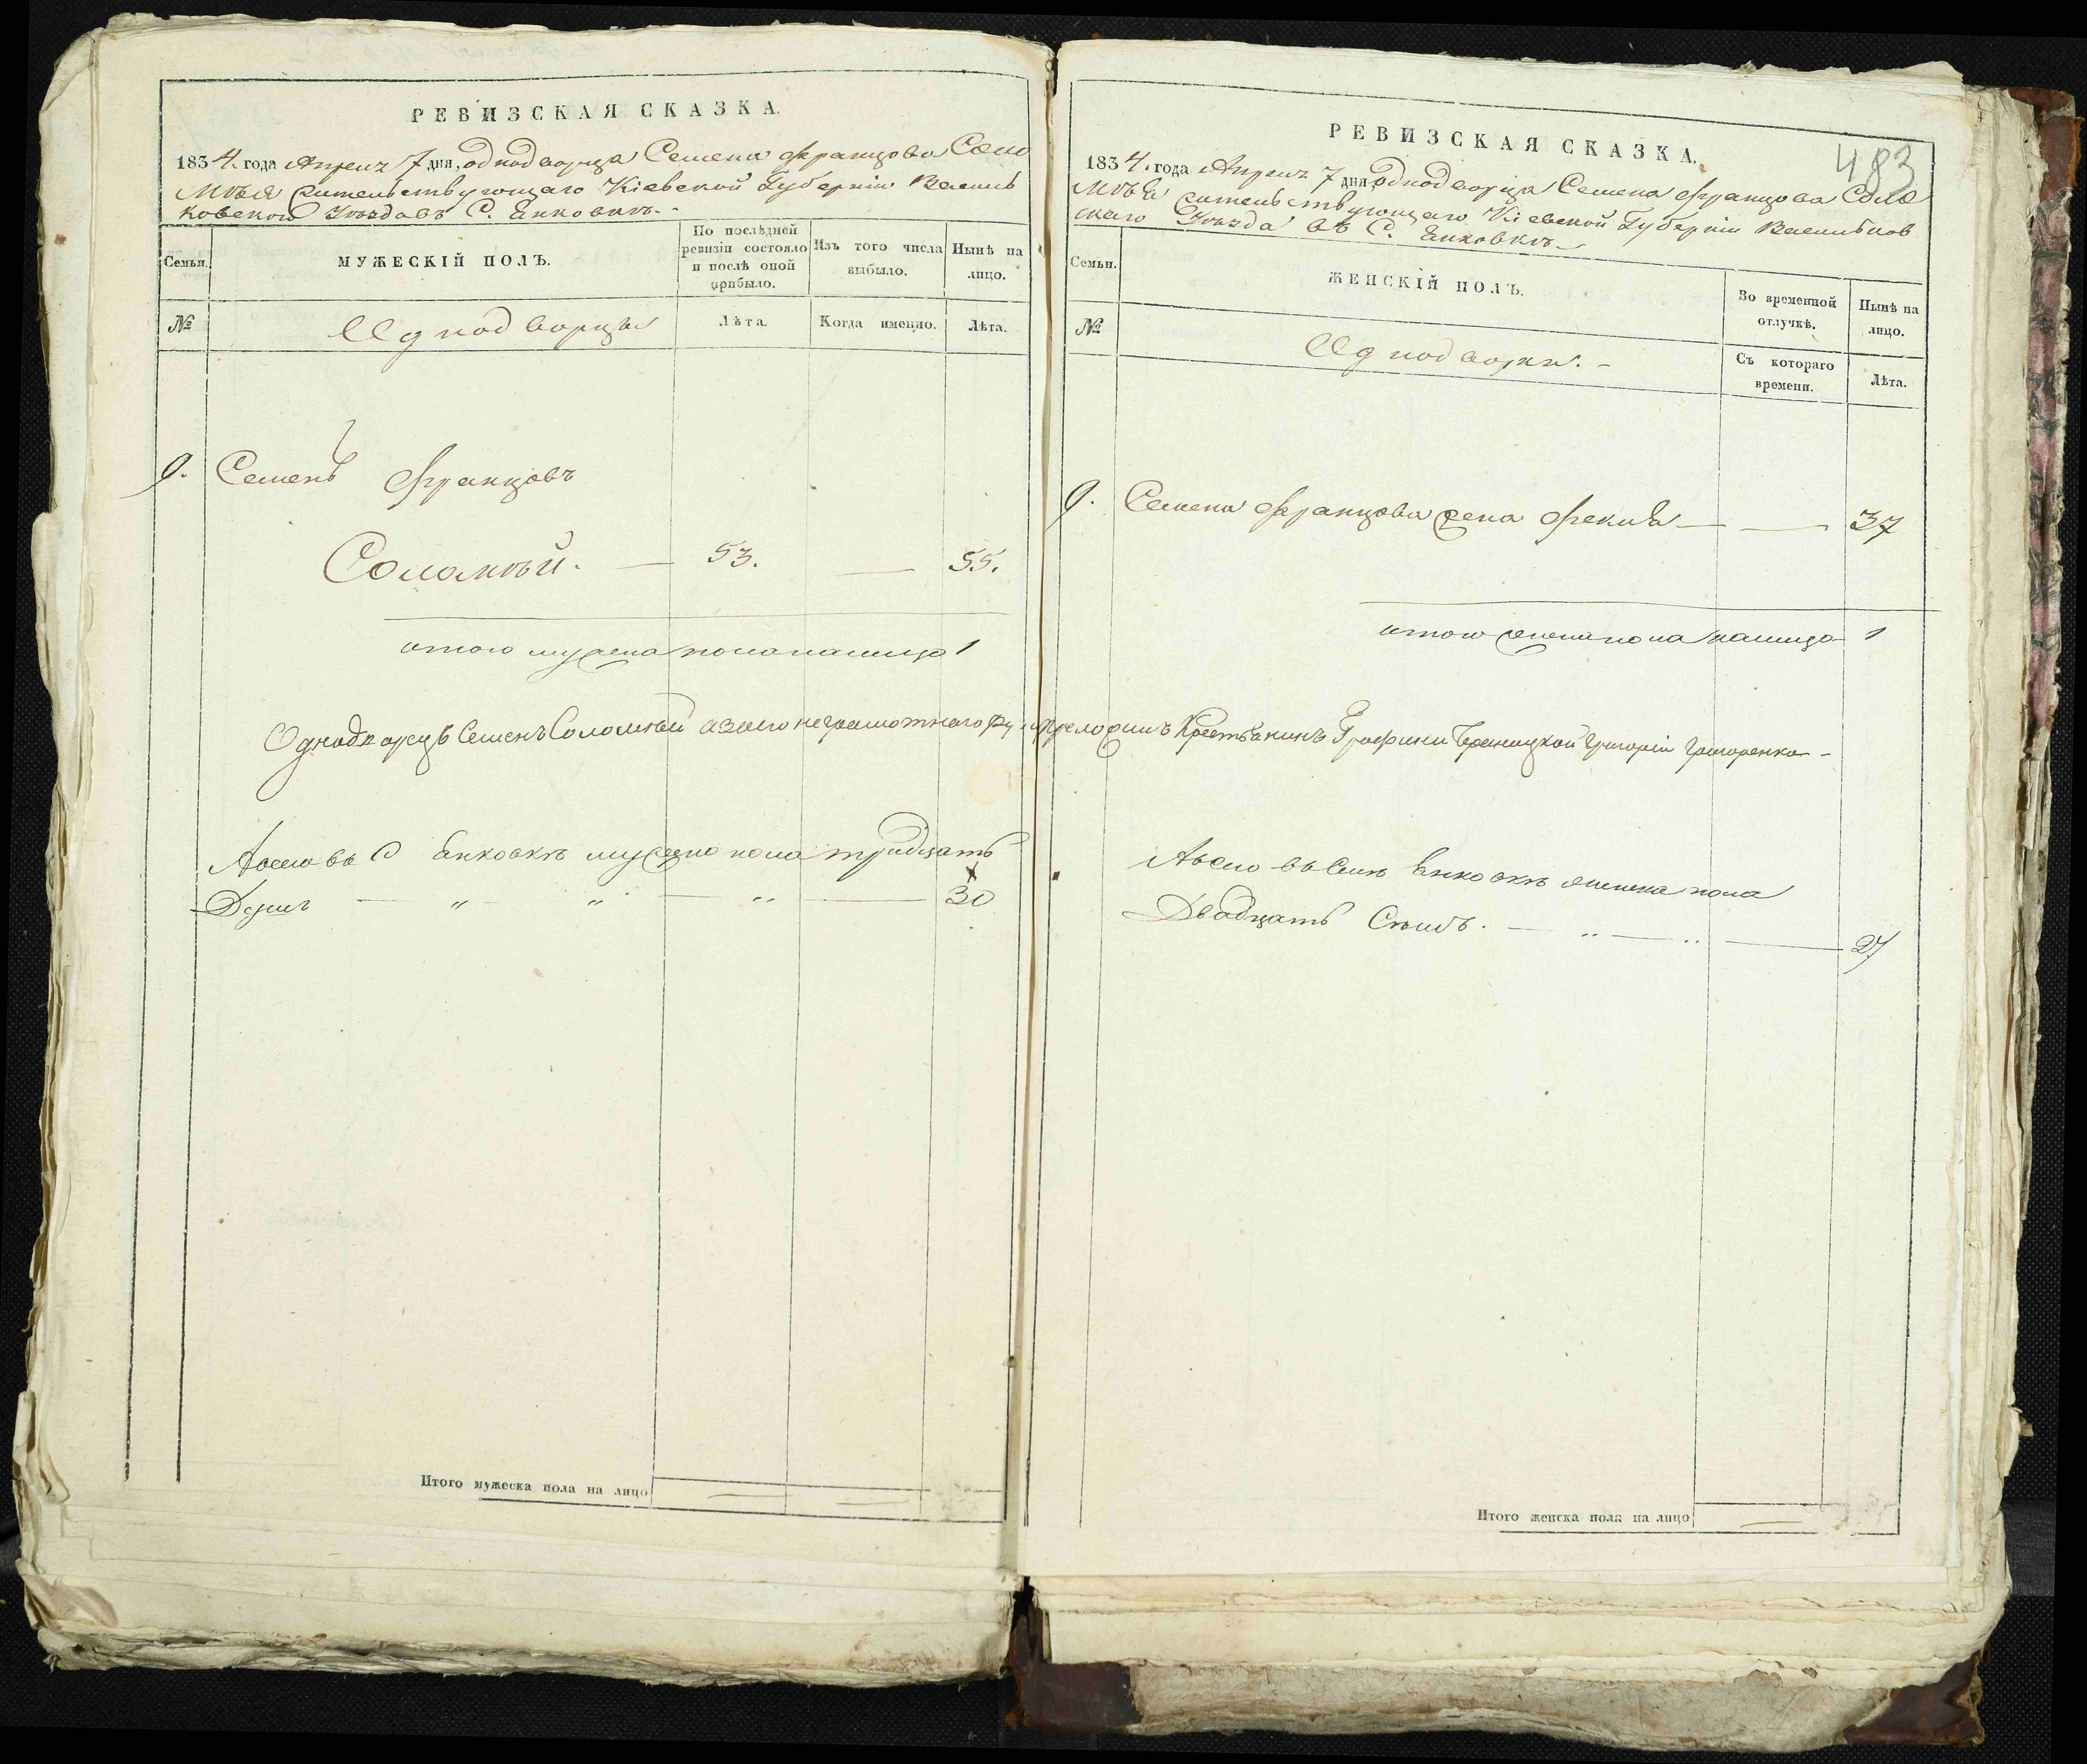 РЕВИЗСКАЯ СКАЗКА.
1834. года Апреля 7 дня, однодворца Семена Францова Соло
мѣя жительствующаго Кіевской Губерніи Василь
ковской Уезда въ С. Янковкѣ.
Семьи.
МУЖЕСКІЙ ПОЛЪ.
По послѣдней ревизіи состояло и послѣ оной прибыло.
Изъ того числа выбыло.
Нынѣ на лицо.
№
Однодворцы
Лѣта.
Когда именно.
Лѣта.
9. Семенъ Францовъ
Соломѣй. — 53. — 55.
итого мужеска пола налицо 1
Однодворецъ Семенъ Соломѣй а за него неграмотнаго ру
Всего въ С Янковкѣ мужеска пола тридцать
Душъ — " — " — " — 30
Итого мужеска пола на лицо
483
РЕВИЗСКАЯ СКАЗКА.
1834. года Апреля 7 дня Однодворца Семена Францова Соло
мѣя жительствующаго Кіевской Губерніи Васильков
скаго Уезда въ С. Янковкѣ.
Семьи.
ЖЕНСКІЙ ПОЛЪ.
Во временной отлучкѣ.
Нынѣ на лицо.
№
Однодворки.
Съ котораго времени.
Лѣта.
9. Семена Францова жена Фекла — — 37
итого женска пола налицо 1
приложилъ Крестьянинъ Графини Браницкой Григорій Григоренко
Всего въ Селѣ Янковкѣ женска пола
Двадцать Семь. — " — " — 27
Итого женска пола на лицо